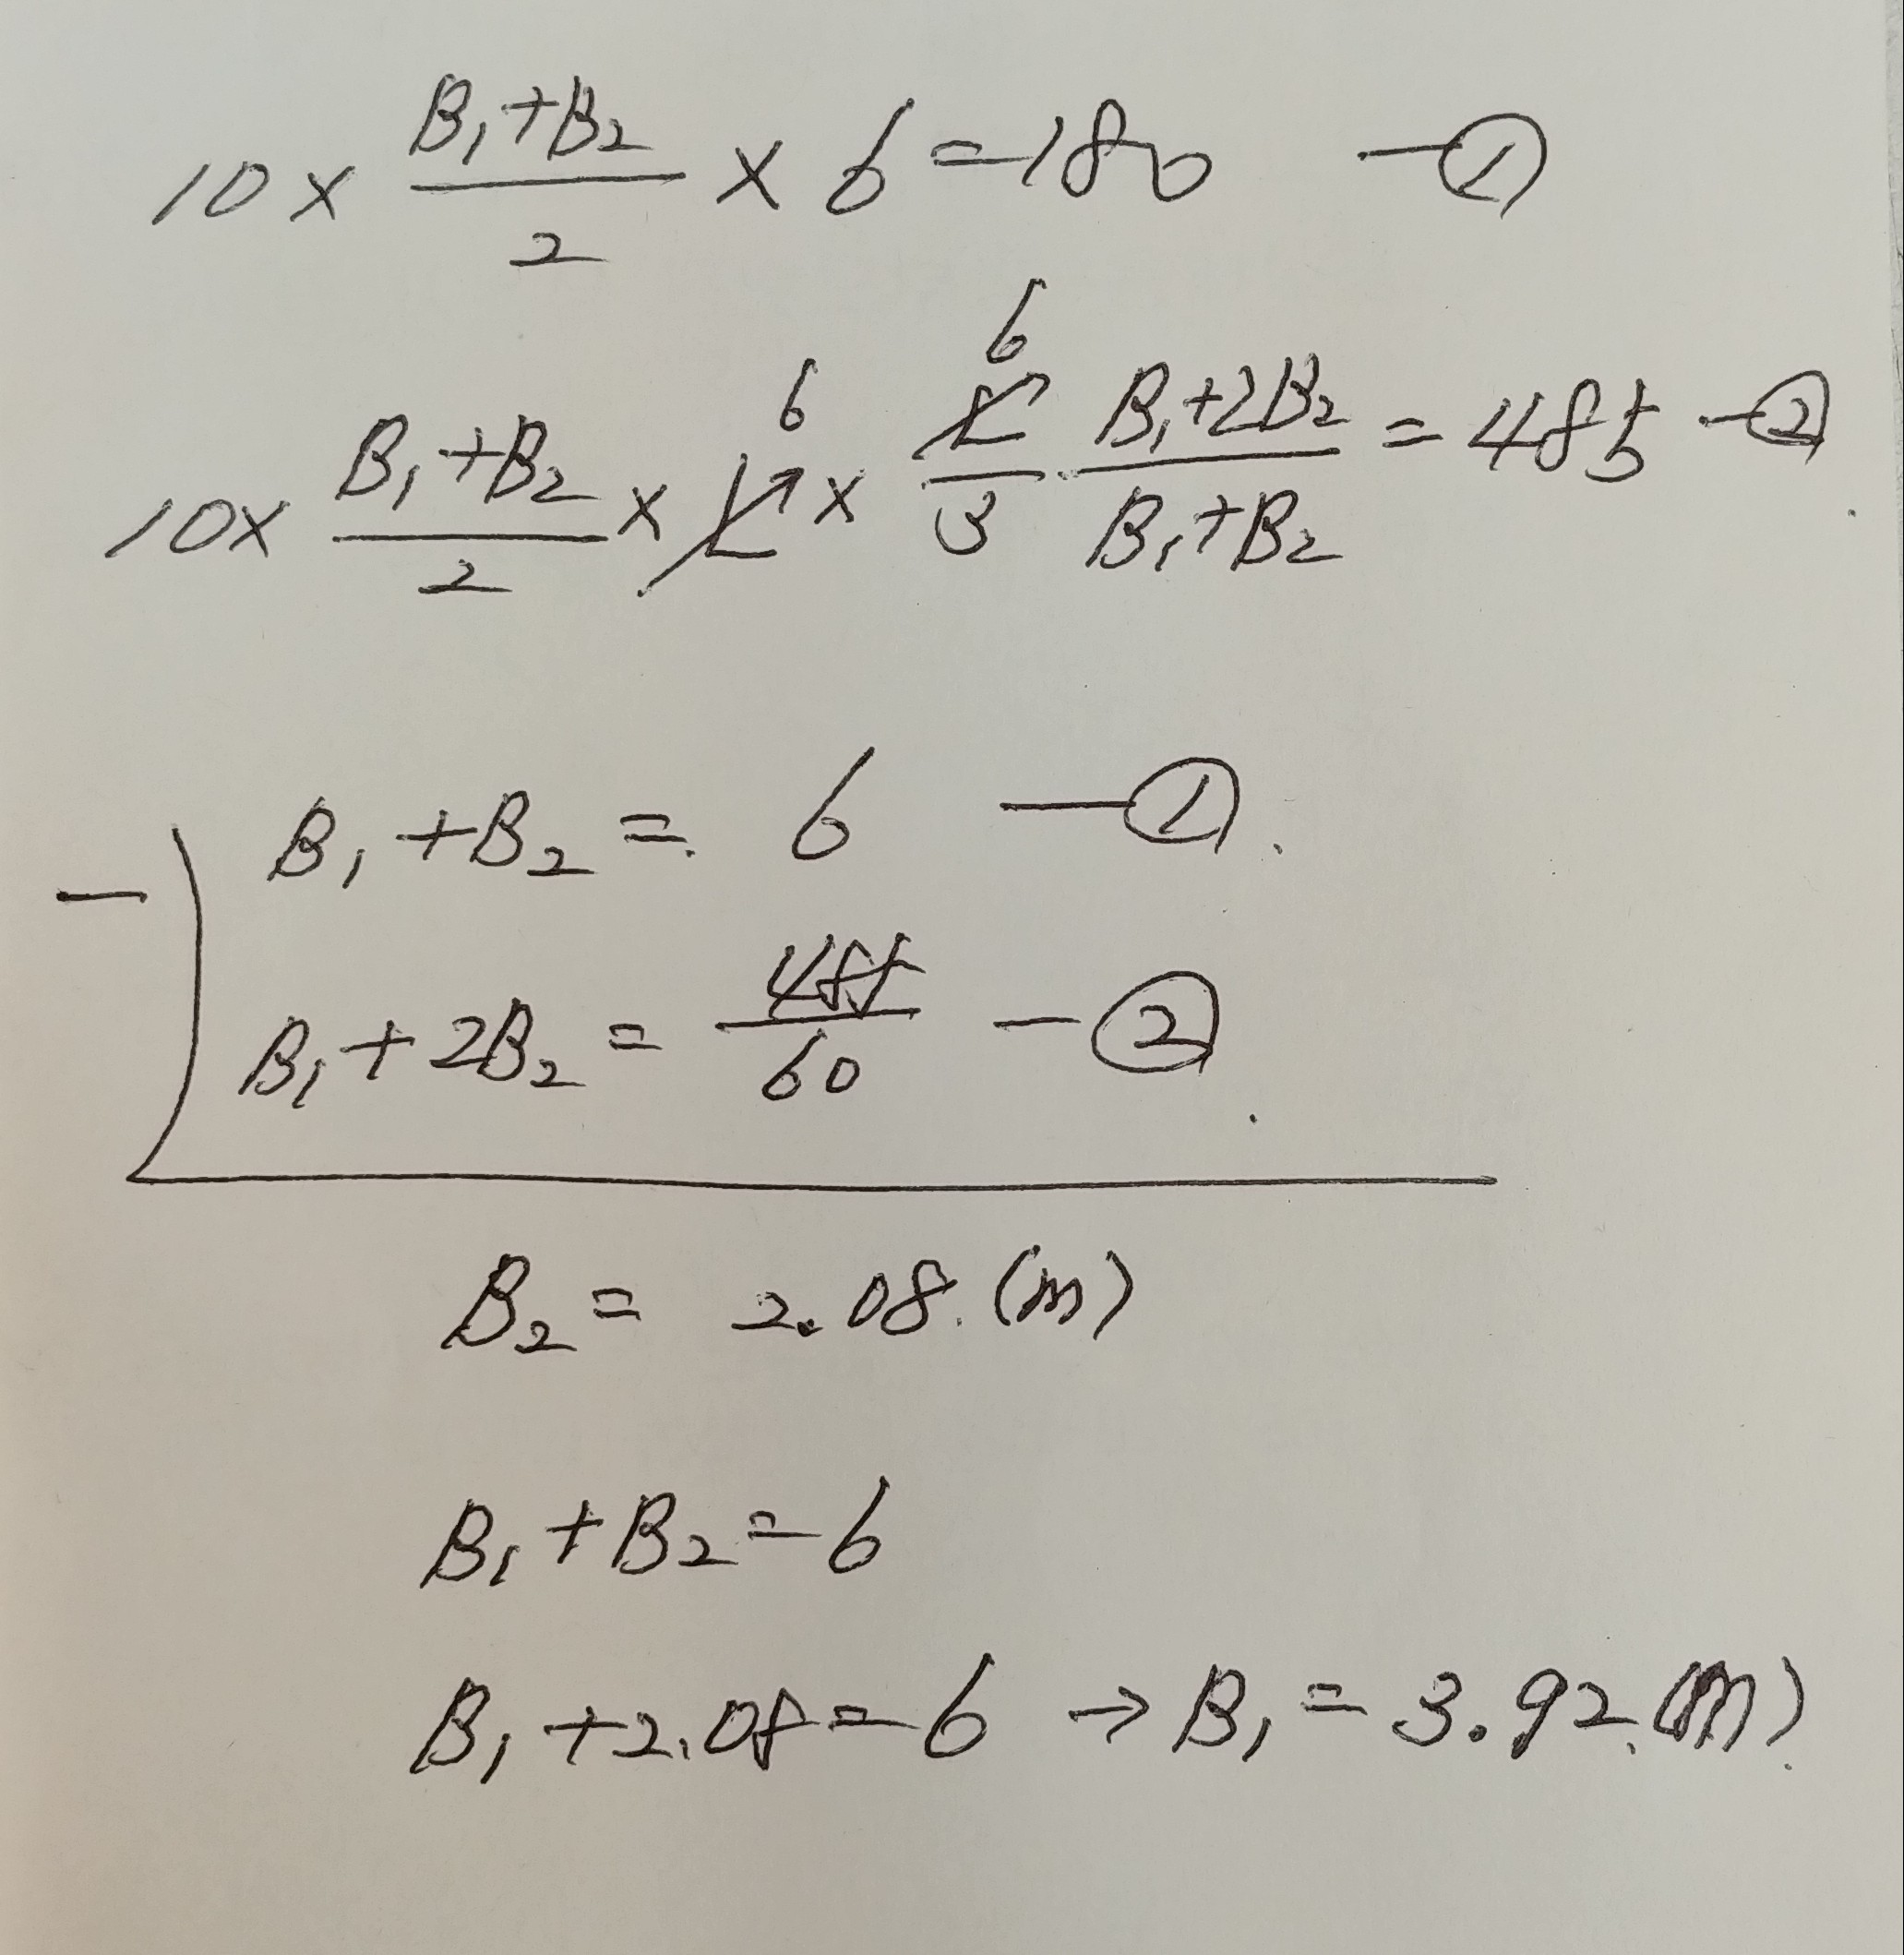 10 × (B₁+B₂)/2 × 6 = 180 — ①
10 × (B₁+B₂)/2 × L 6 × L 6/3 · (B₁+2B₂)/(B₁+B₂) = 485 — ②
B₁ + B₂ = 6 — ①
− B₁ + 2B₂ = 485/60 — ②
B₂ = 2.08 (m)
B₁ + B₂ = 6
B₁ + 2.08 = 6 → B₁ = 3.92 (m)